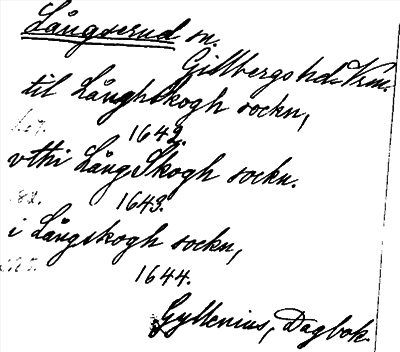 Långserud sn.
Gillbergs hd. Vrm.
til Långhskogh sockn,
1642.
vthi Lång Skogh sockn.
1643.
i Långskogh sockn,
1644.
Gyllenius, Dagbok.